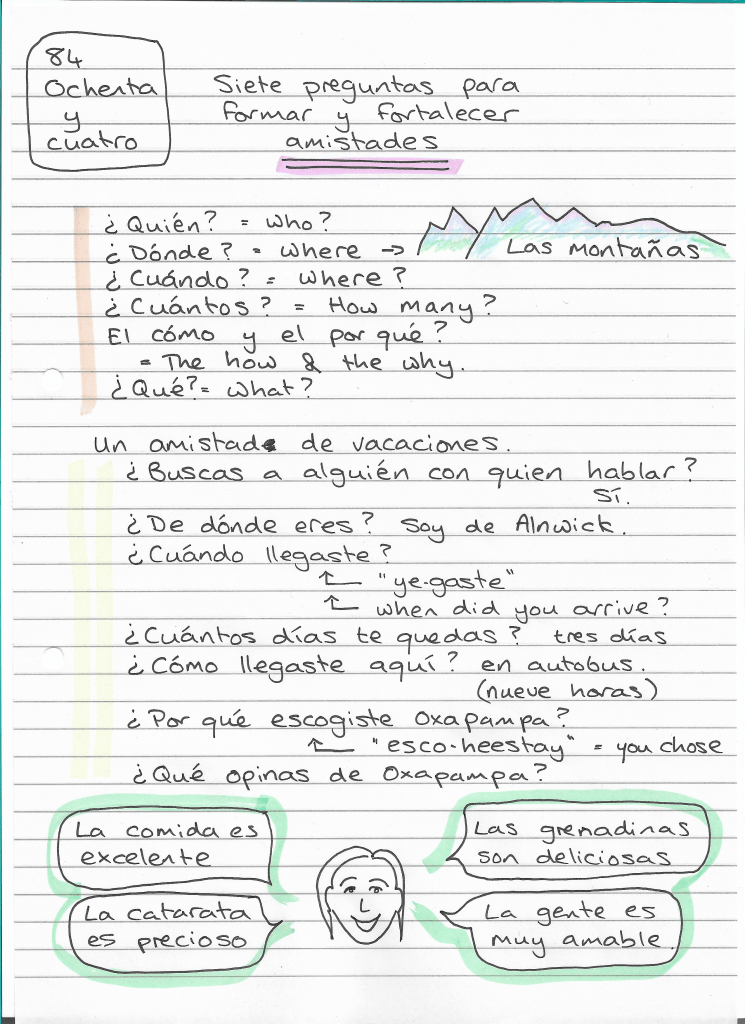 84
Ochenta
y
cuatro
Siete preguntas para
formar y fortalecer
amistades
¿Quién? = Who?
¿Dónde? = where →
Las Montañas
¿Cuándo? = where?
¿Cuántos? = How many?
El cómo y el por qué?
= The how & the why.
¿Qué? = What?
Un amistad de vacaciones.
¿Buscas a alguién con quien hablar?
Sí.
¿De dónde eres? Soy de Alnwick.
¿Cuándo llegaste?
"ye-gaste"
when did you arrive?
¿Cuántos días te quedas? tres días
¿Cómo llegaste aquí? en autobus.
(nueve horas)
¿Por qué escogiste Oxapampa?
"esco-heestay" = you chose
¿Qué opinas de Oxapampa?
La comida es
excelente
Las grenadinas
son deliciosas
La catarata
es precioso
La gente es
muy amable.